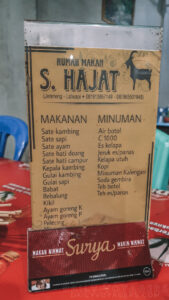 RUMAH MAKAN
S. HAJAT
MAKANAN
Sate kambing
Sate sapi
Sate ayam
Sate hati daong
Sate hati campur
Kepala kambing
Gulai kambing
Gulai sapi
Babat
Bebalung
Kikil
Ayam goreng K
Ayam goreng P
Pelecing
MINUMAN
Air botol
C 1000
Es kelapa
Jeruk m/panas
Kelapa utuh
Kopi
Minuman Kalengan
Soda gembira
Teh botol
Teh m/panas
MAKAN NIKMAT
Surya
MAKIN NIKMAT